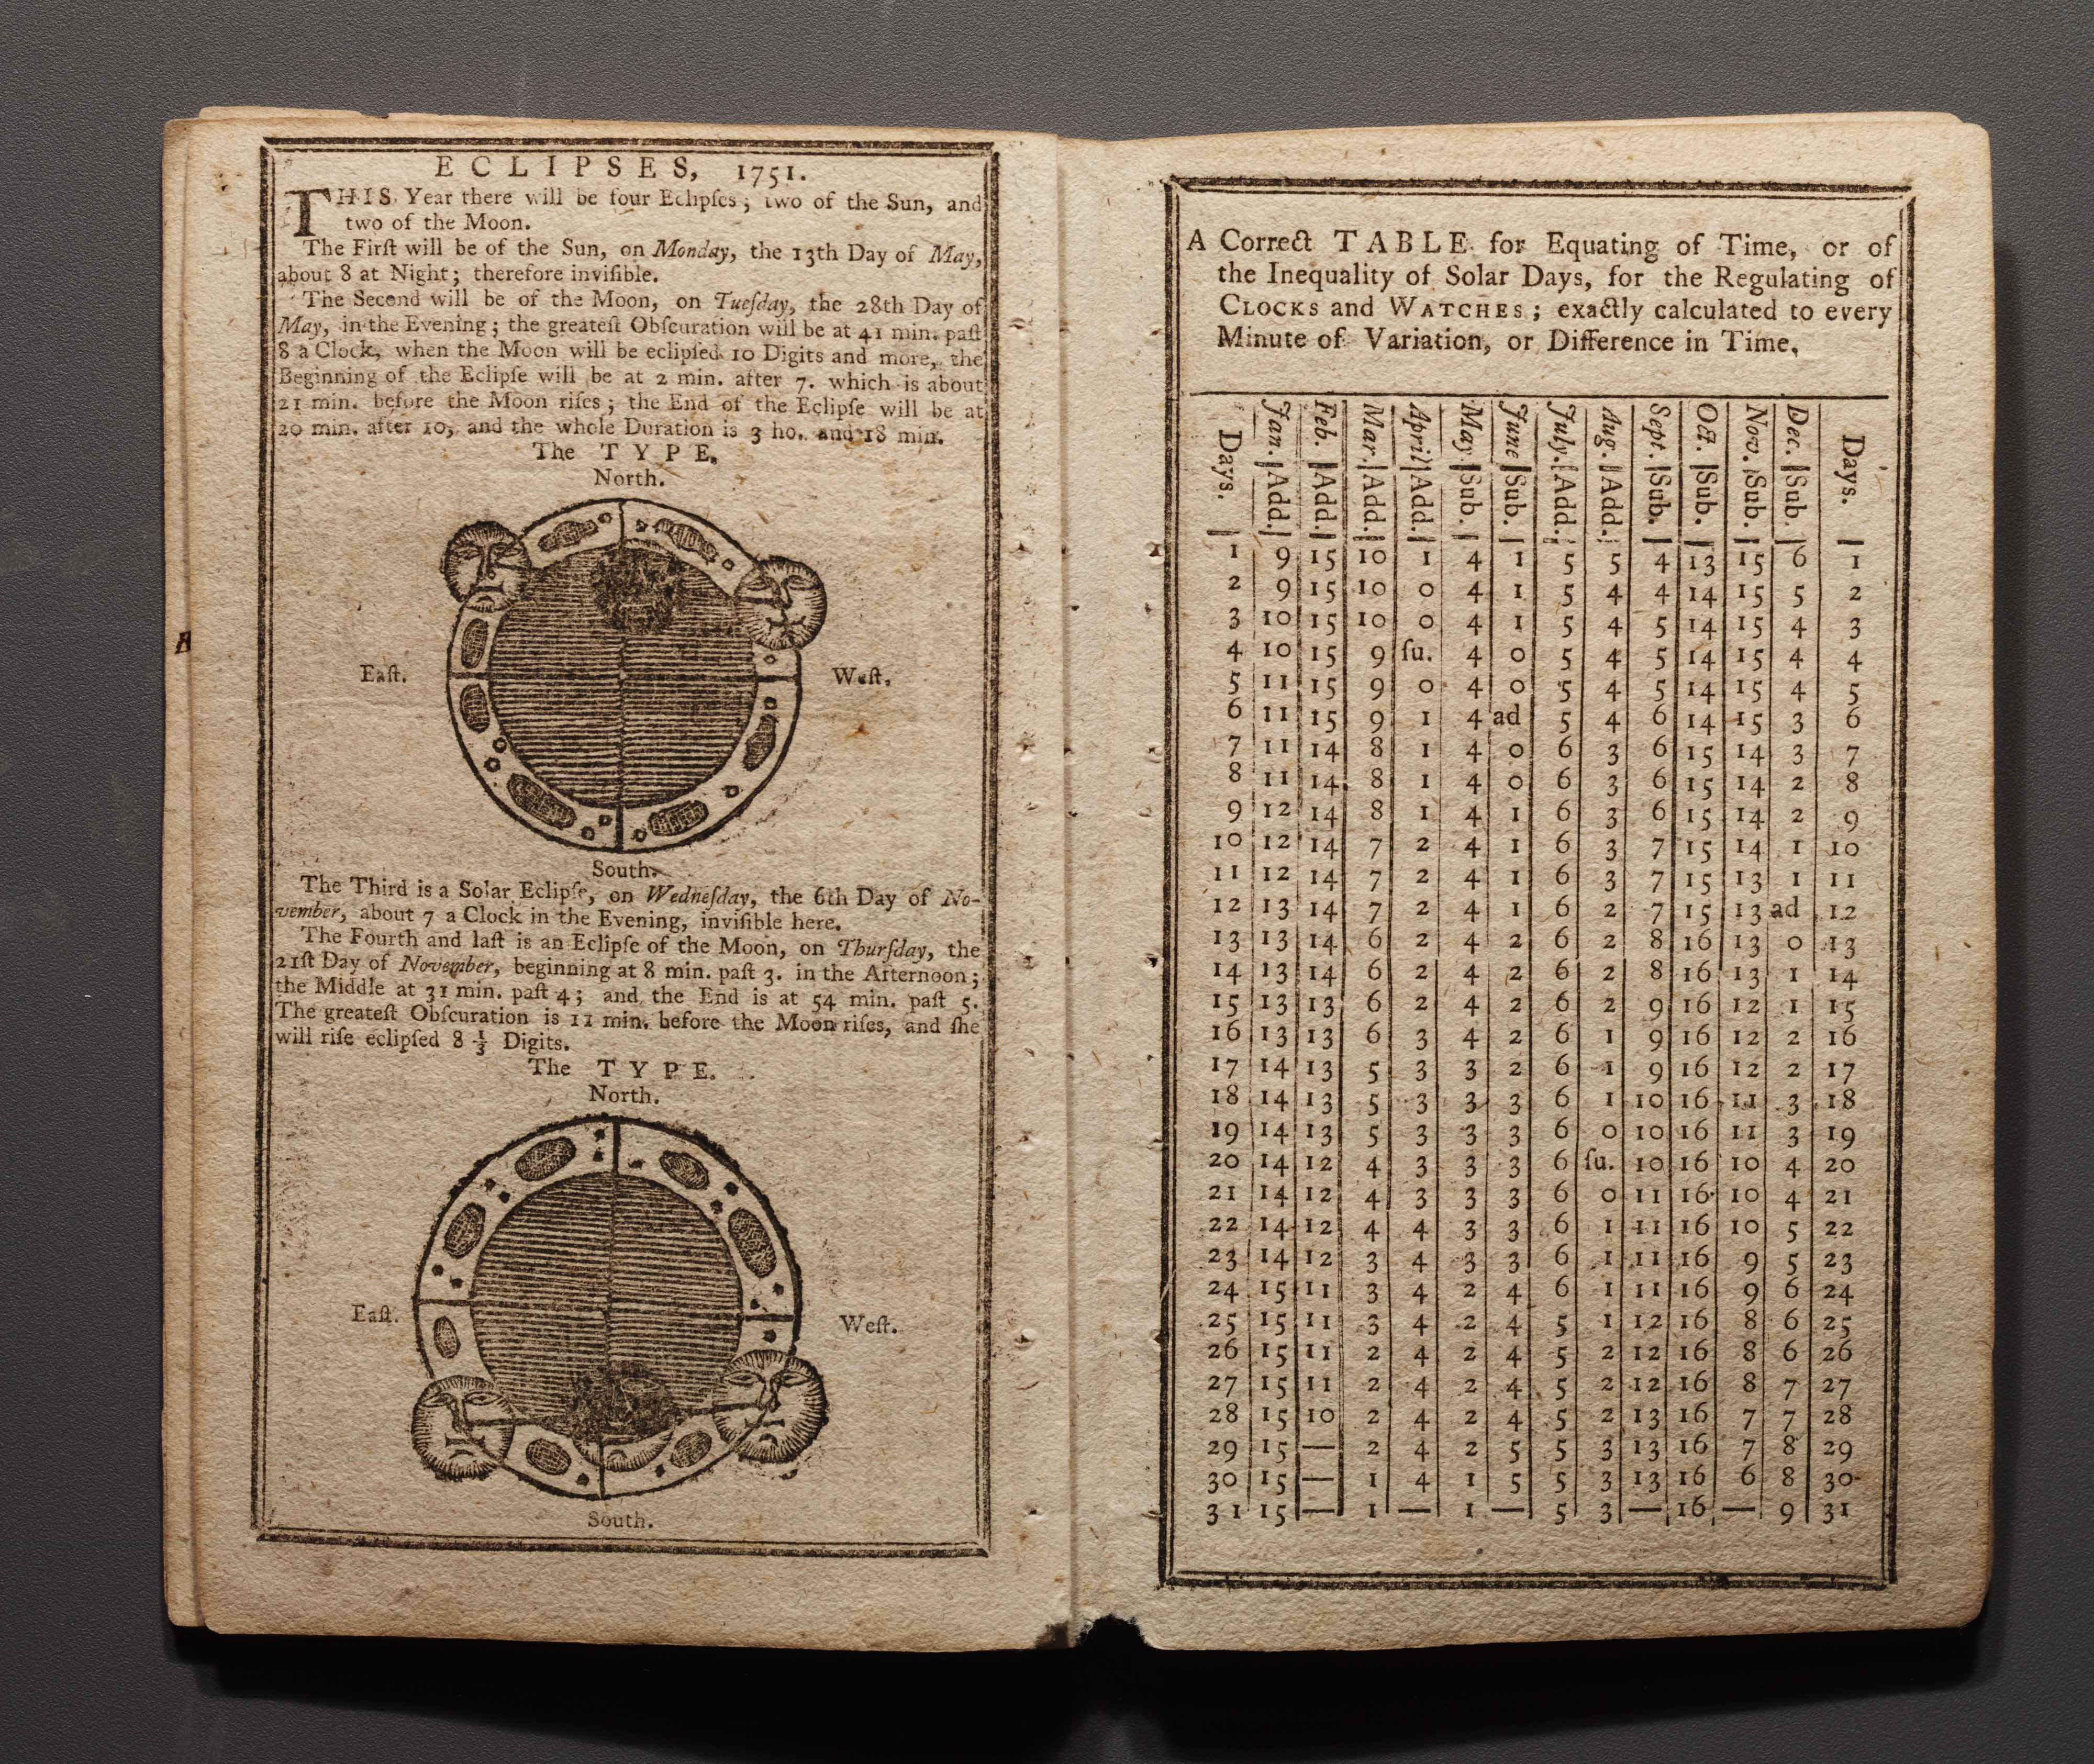 ECLIPSES, 1751.
THIS Year there will be four Eclipſes; two of the Sun, and
two of the Moon.
The Firſt will be of the Sun, on Monday, the 13th Day of May,
about 8 at Night; therefore inviſible.
The Second will be of the Moon, on Tueſday, the 28th Day of
May, in the Evening; the greateſt Obſcuration will be at 41 min. paſt
8 a Clock, when the Moon will be eclipſed 10 Digits and more, the
Beginning of the Eclipſe will be at 2 min. after 7. which is about
21 min. before the Moon riſes; the End of the Eclipſe will be at
20 min. after 10, and the whole Duration is 3 ho. and 18 min.
The TYPE.
North.
Eaſt. Weſt.
South.
The Third is a Solar Eclipſe, on Wedneſday, the 6th Day of No-
vember, about 7 a Clock in the Evening, inviſible here.
The Fourth and laſt is an Eclipſe of the Moon, on Thurſday, the
21ſt Day of November, beginning at 8 min. paſt 3. in the Afternoon;
the Middle at 31 min. paſt 4; and the End is at 54 min. paſt 5.
The greateſt Obſcuration is 11 min. before the Moon riſes, and ſhe
will riſe eclipſed 8 1/3 Digits.
The TYPE.
North.
Eaſt. Weſt.
South.
A Correct TABLE for Equating of Time, or of
the Inequality of Solar Days, for the Regulating of
CLOCKS and WATCHES; exactly calculated to every
Minute of Variation, or Difference in Time,
Days. | Jan. Add. | Feb. Add. | Mar. Add. | April Add. | May Sub. | June Sub. | July. Add. | Aug. Add. | Sept. Sub. | Oct. Sub. | Nov. Sub. | Dec. Sub. | Days.
1 9 15 10 1 4 1 5 5 4 13 15 6 1
2 9 15 10 0 4 1 5 4 4 14 15 5 2
3 10 15 10 0 4 1 5 4 5 14 15 4 3
4 10 15 9 ſu. 4 0 5 4 5 14 15 4 4
5 11 15 9 0 4 0 5 4 5 14 15 4 5
6 11 15 9 1 4 ad 5 4 6 14 15 3 6
7 11 14 8 1 4 0 6 3 6 15 14 3 7
8 11 14 8 1 4 0 6 3 6 15 14 2 8
9 12 14 8 1 4 1 6 3 6 15 14 2 9
10 12 14 7 2 4 1 6 3 7 15 14 1 10
11 12 14 7 2 4 1 6 3 7 15 13 1 11
12 13 14 7 2 4 1 6 2 7 15 13 ad 12
13 13 14 6 2 4 2 6 2 8 16 13 0 13
14 13 14 6 2 4 2 6 2 8 16 13 1 14
15 13 13 6 2 4 2 6 2 9 16 12 1 15
16 13 13 6 3 4 2 6 1 9 16 12 2 16
17 14 13 5 3 3 2 6 1 9 16 12 2 17
18 14 13 5 3 3 3 6 1 10 16 11 3 18
19 14 13 5 3 3 3 6 0 10 16 11 3 19
20 14 12 4 3 3 3 6 ſu. 10 16 10 4 20
21 14 12 4 3 3 3 6 0 11 16 10 4 21
22 14 12 4 4 3 3 6 1 11 16 10 5 22
23 14 12 3 4 3 3 6 1 11 16 9 5 23
24 15 11 3 4 2 4 6 1 11 16 9 6 24
25 15 11 3 4 2 4 5 1 12 16 8 6 25
26 15 11 2 4 2 4 5 2 12 16 8 6 26
27 15 11 2 4 2 4 5 2 12 16 8 7 27
28 15 10 2 4 2 4 5 2 13 16 7 7 28
29 15 — 2 4 2 5 5 3 13 16 7 8 29
30 15 — 1 4 1 5 5 3 13 16 6 8 30
31 15 — 1 — 1 — 5 3 — 16 — 9 31